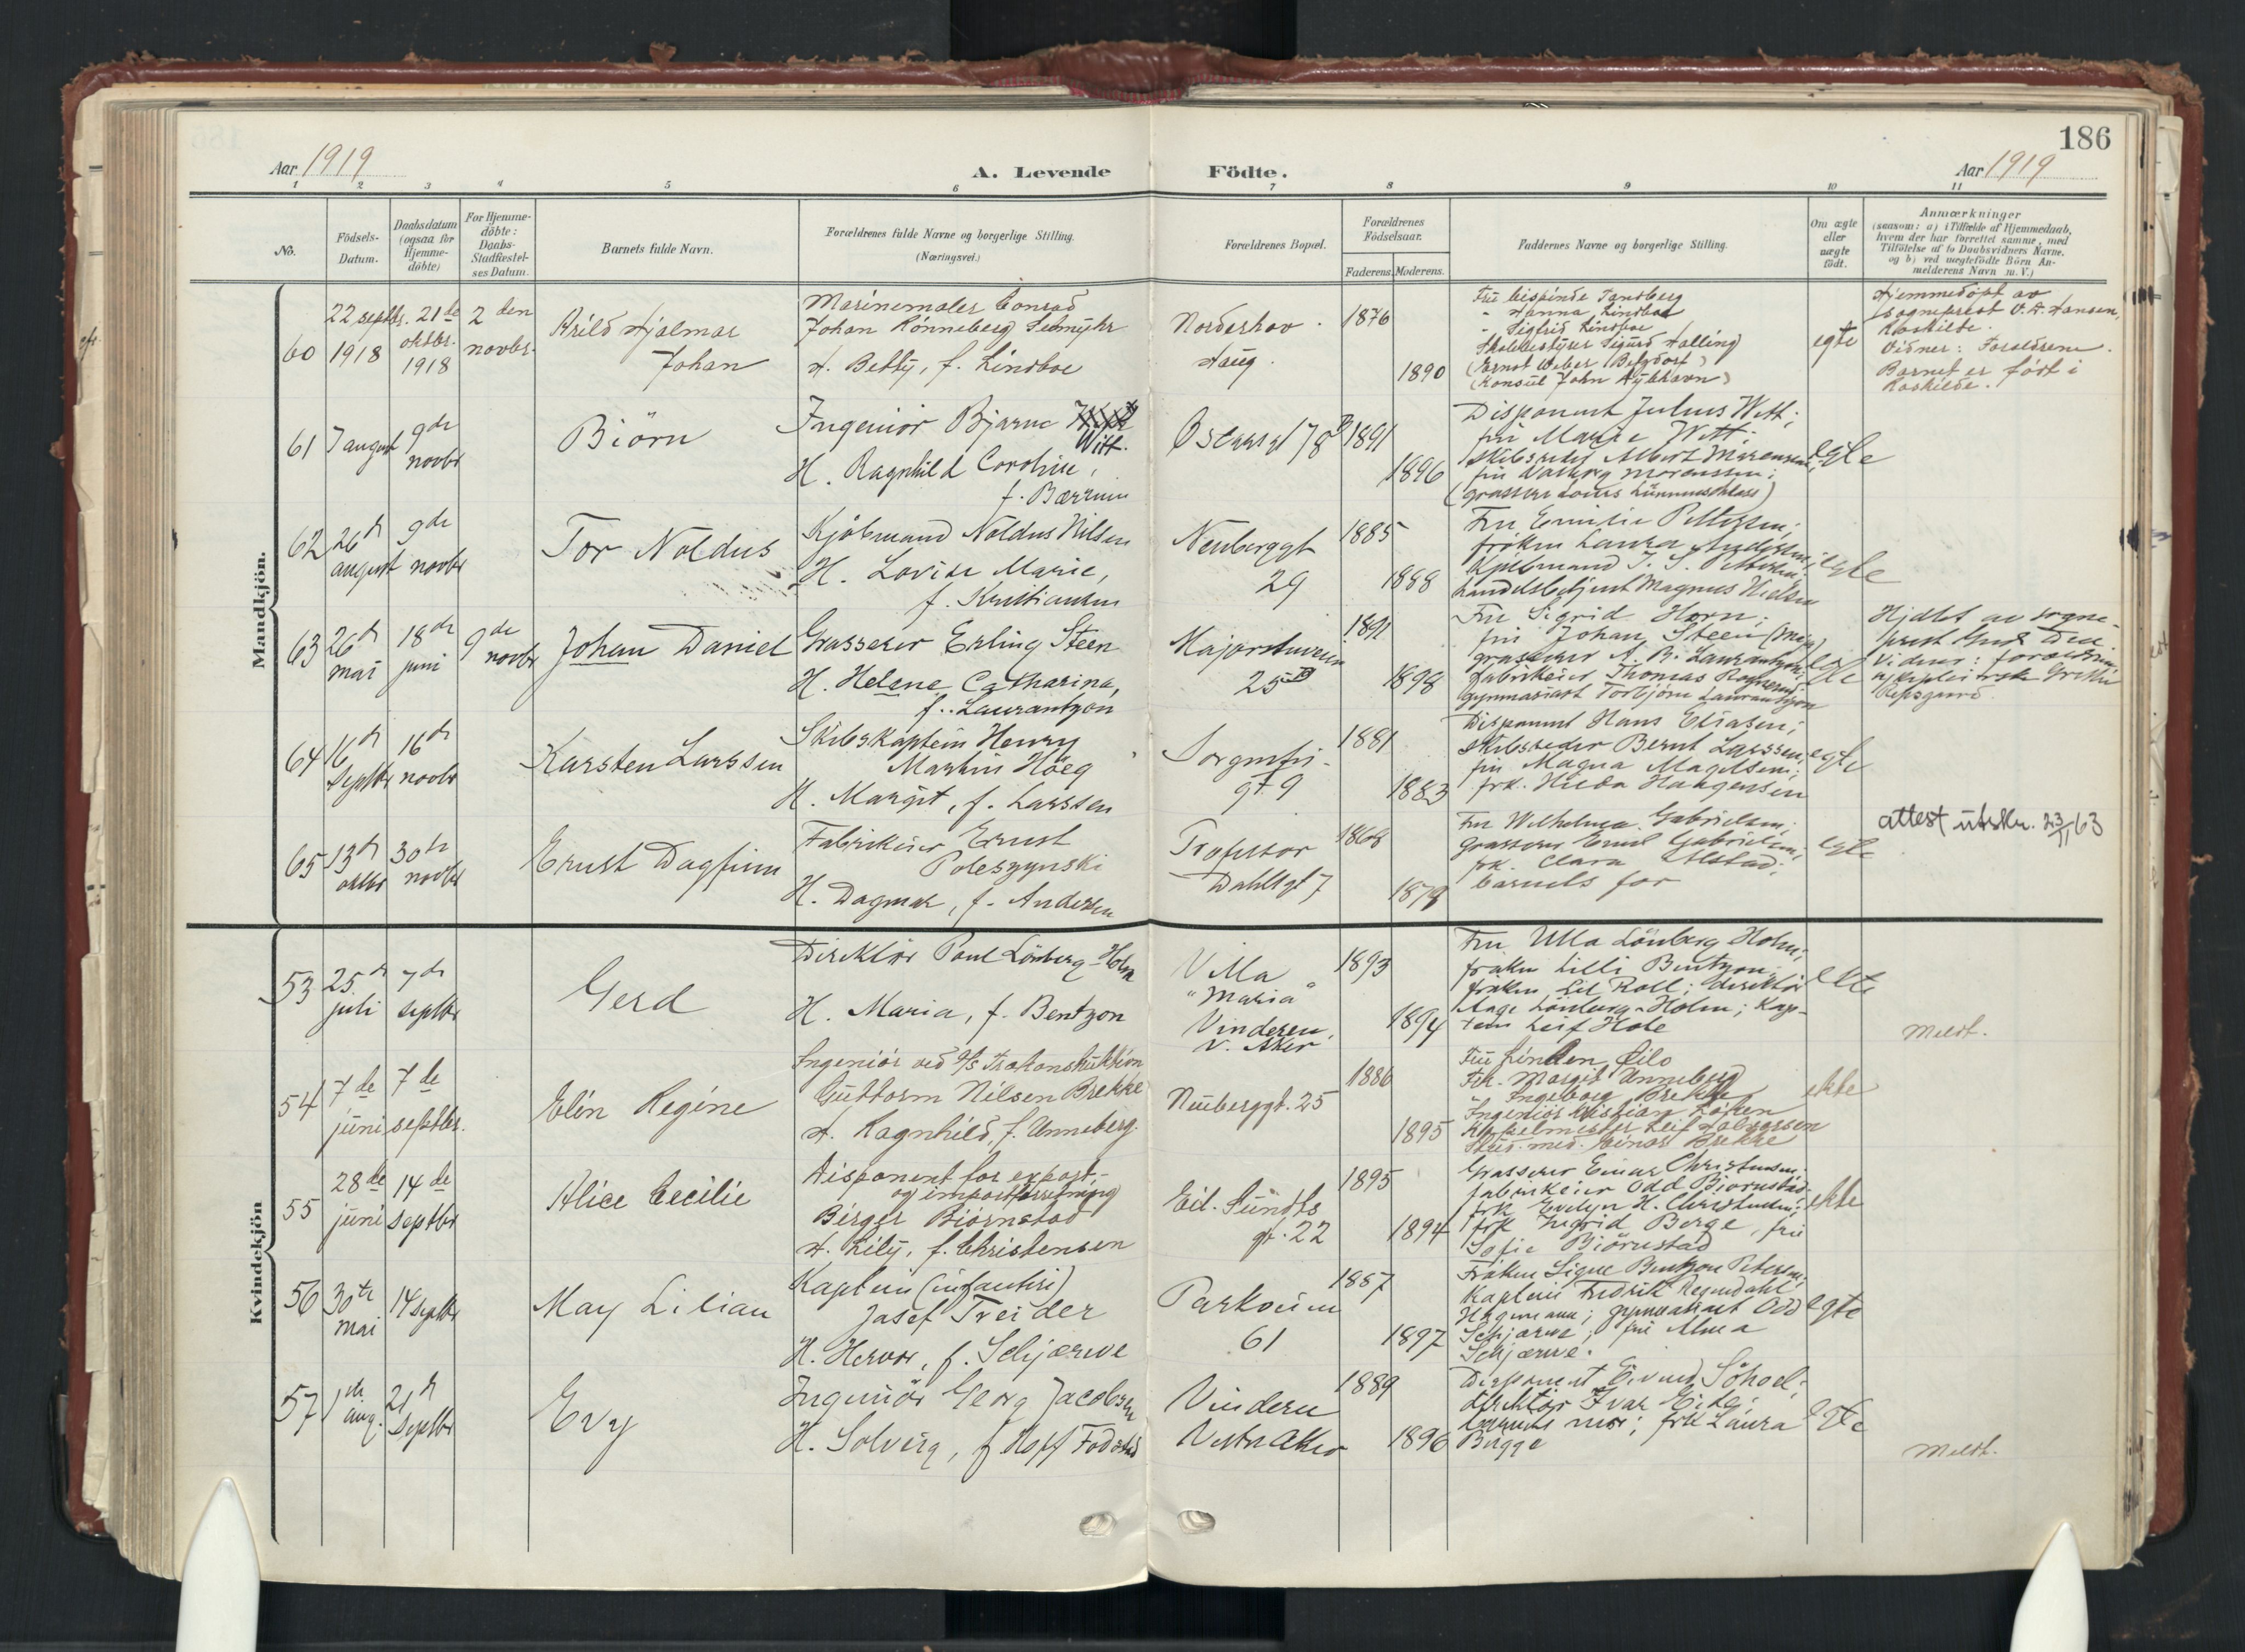 186
Aar 1919
A. Levende Födte.
Aar 1919
1 2 3 4 5 6 7 8 9 10 11
No.
Födsels-Datum.
Daabsdatum (ogsaa for Hjemme-döbte)
For Hjemme-döbte: Daabs-Stadfæstel-ses Datum.
Barnets fulde Navn.
Forældrenes fulde Navne og borgerlige Stilling. (Næringsvei.)
Forældrenes Bopæl.
Forældrenes Födselsaar.
Faderens. Moderens.
Faddernes Navne og borgerlige Stilling.
Om ægte eller uægte födt.
Anmærkninger
(saasom: a) i Tilfælde af Hjemmedaab,
hvem der har forrettet samme, med
Tilföielse af to Daabsvidners Navne,
og b) ved uægtefödte Börn An-
melderens Navn m. V.)
Mandkjön.
60
22 septbr. 1918
21de oktbr. 1918
2den novbr.
Arild Hjalmar
Johan
Marinemaler Conrad
Johan Rönneberg Selmyhr
H. Betty, f. Lindboe
Norderhov.
Haug.
1876
1890
Fru Cispinde Tandberg
" Hanna Lindboe
" Sigfrid Lindboe
Skolebestyrer Sigurd Halling
(Ernst Weber (Belgdorf)
(Konsul John Nykhavn)
egte
Hjemmedöpt av
sogneprest V. A. Hansen,
Roskilde.
Vidner: Forældrene.
Barnet er født i
Roskilde.
61
7 august
9de novbr
Biörn
Ingeniör Bjarne
Witt.
H. Ragnhild Caroline,
f. Bærrum
Oscarsgt 78B
1891
1896
Disponent Julius Witt;
fru Marie Witt;
skibsreder Albert Morenssen;
fru Valborg Morenssen;
egte
62
26de august
9de novbr
Tor Noldus
Kjöbmand Noldus Nilsen
H. Lovise Marie,
f. Kristiansen
Neuberggt
29
1885
1888
Fru Emilie Pettersen;
fröken Laura Andersen;
kjöbmand J. S. Pettersen;
handelsbetjent Magnus Nielsen
egte
63
26de mai
18de juni
9de novbr
Johan Daniel
Grosserer Erling Steen
H. Helene Catharina,
f. Laurantzon
Majorstuveien
25B
1891
1898
Fru Sigrid Horn;
fru Johan Steen (Meja)
grosserer A. B. Laurantzon;
fabrikeier Thomas Rognerud;
gymnasiast Torbjörn Laurantzon
egte
Hjdbt av sogne-
prest
Vidner: forældrene,
64
16de septbr
16de novbr
Karsten Larssen
Skibskaptein Henry
Martin Höeg
H. Margit, f. Larssen
Sorgenfri-
gt. 9
1881
1883
Disponent Hans Eliasen;
skibsreder Bernt Larssen;
fru Magna Magelssen;
frk. Hilda Haagensen
egte
65
13de oktbr
30te novbr
Ernst Dagfinn
Fabrikeier Ernst
Poleszynski
H. Dagmar, f. Andersen
Professor
Dahlsgt 7
1868
1879
Fru Wilhelmea Gabrielsen;
grosserer Emil Gabrielsen;
frk. Clara Alstad;
barnets far
egte
attest utskr. 23/11 63
Kvindekjön
53
25de juli
7de septbr
Gerd
Direktör Paul Lönberg-Holm
H. Maria, f. Bentzon
Villa
"Maria"
Vinderen,
V. Aker
1893
1894
Fru Ulla Lönberg Holm;
fröken Lilli Bentzon;
fröken Lil Roll; direktör
Aage Lönberg-Holm; kap-
tein Leif Hole
ekte
Meldt.
54
7de juni
7de septbr.
Elin Regine
Ingeniör ved A/S Trækonstruktion
Guttorm Nilsen Brekke
H. Ragnhild, f. Unneberg.
Neuberggt. 25
1886
1895
Fru Linken Eilo
Frk. Margit Unneberg
" Ingeborg Brekke
Ingeniör Kristian Löken
Kapelmester Leif Halvorsen
Stud. med. Einar Brekke
ekte
55
28de juni
14de septbr
Alice Cecilie
Disponent for export-
og importforretning
Birger Biörnstad
H. Lily, f. Christensen
Eil. Sundts
gt. 22
1895
1894
Grosserer Einar Christensen;
fabrikeier Odd Biörnstad;
frk Evelyn H. Christensen;
frk Ingrid Berge, fru
Sofie Biörnstad
ekte
56
30te mai
14 septbr
May Lilian
Kaptein (infanteri)
Josef Treider
H. Hervor, f. Schjærve
Parkveien
61
1887
1897
Fröken Signe Bentzon Petersen;
kaptein Fredrik Regindahl
Hagemann; gymnasiast Odd
Schjærve; fru Alma
Schjærve.
egte
57
1ste aug.
21de septbr
Evy
Ingeniör Georg Jacobsen
H. Solveig, f. Hoff Fodstad
Vinderen
Vestre Aker
1889
1896
Disponent Eivind Söhoel;
direktör Ivar Eide;
barnets mor; frk Laura
Bugge
egte
Meldt.